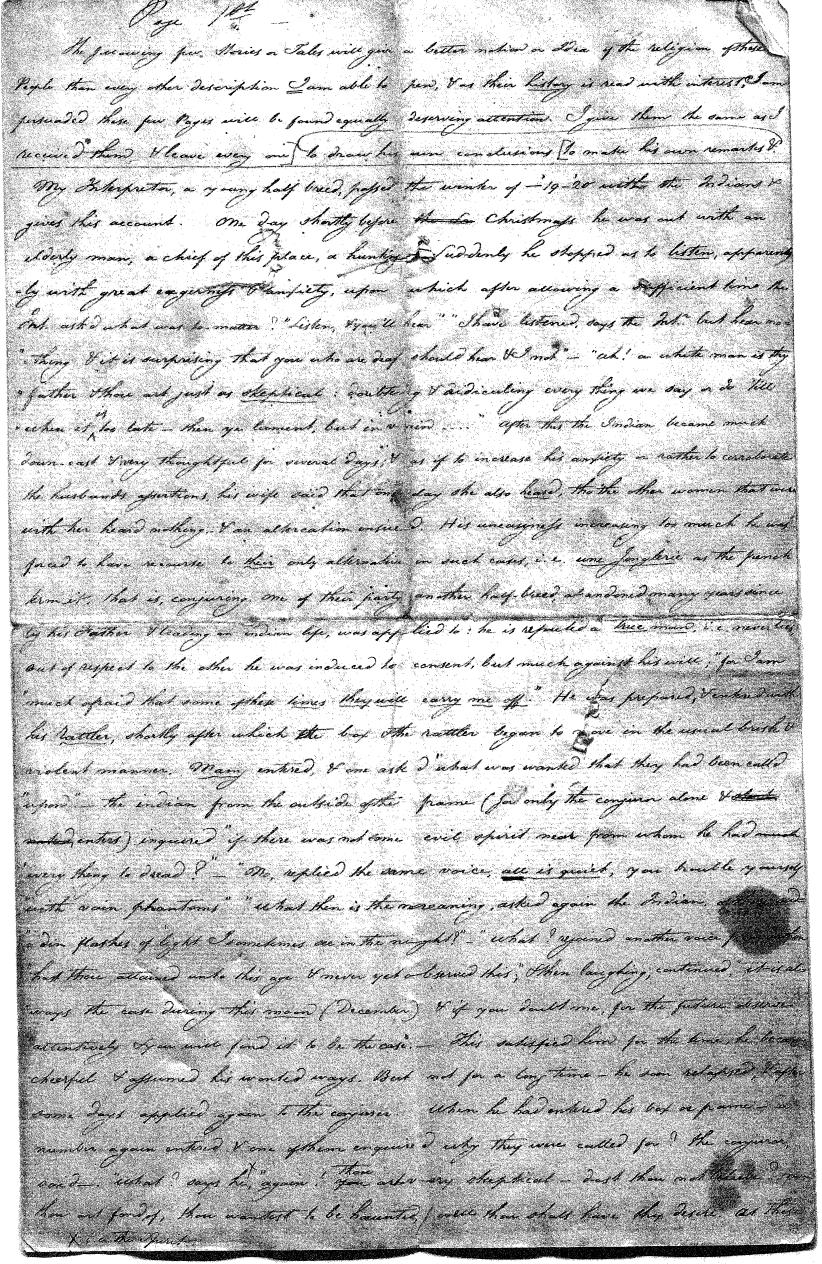 Page 1st
The following few Stories or Tales will give a better notion or Idea of the religion of these
People than every other description I am able to pen, & as their history is read with interest, I am
persuaded these few Pages will be found equally deserving attention. I give them the same as I
received them, & leave every one [to draw his own conclusions [to make his own remarks &.
My Interpretor, a young half breed, passed the winter of –'19–'20 with the Indians &
gives this account. One day shortly before Christmass he was out with an
elderly man, a chief of this place, a hunting Suddenly he stopped as to listen, apparent
ly with great eagerness & anxiety, upon which after allowing a sufficient time the
Int. ask'd what was to matter? "Listen, & you'll hear" "I have listened, says the Int. but hear no-
"thing & it is surprising that you who are deaf should hear & I not" – "ah! a white man is thy
"Father & thou art just as skeptical: doubting & ridiculing every thing we say or do till
"when it is too late – then ye lament, but in vain ...." After this the Indian became much
down-cast & very thoughtful for several days; & as if to increase his anxiety or rather to corroborate
the husbands assertions, his wife said that one day she also heard, tho' the other women that were
with her heard nothing. & an altercation ensued. His uneasyness increasing too much he was
forced to have recourse to their only alternative in such cases, i.e. une Jonglerie as the french
term it, that is, conjuring. One of their party another half-breed, abandoned many years since
by his Father & leading an indian life, was applied to: he is reputed a true man, i.e. never lies
out of respect to the other he was induced to consent, but much against his will; "for I am
"much afraid that some of these times they will carry me off." He was prepared, & entered with
his Rattler, shortly after which the box & the rattler began to move in the usual brisk &
violent manner. Many entered, & one ask'd "what was wanted that they had been called
"upon" – the indian from the outside of the frame (for only the conjuror alone &
enters) inquired "if there was not some evil spirit near from whom he had
"every thing to dread?" – "No, replied the same voice, all is quiet, you trouble yourself
"with vain phantoms" "What then is the meaning, asked again the Indian, of
"a din flashes of light I sometimes see in the night?" – "what? rejoined another voice
hast thou attained unto this age & never yet observed this"; & then laughing, continued, "it is al
ways the case during this moon (December) & if you doubt me, for the future observe
"attentively & you will find it to be the case." – This satisfied him for the time, he became
cheerful & assumed his wonted ways. But not for a long time – he soon relapsed, & after
some days applied again to the conjuror. When he had entered his box or frame – a
number again entered & one of them enquired why they were called for? the conjuror
said – "what? says he, "again! thou art very skeptical – dost thou not believe? now
thou art fond of, thou wantest to be haunted, well thou shalt have thy desire. At these